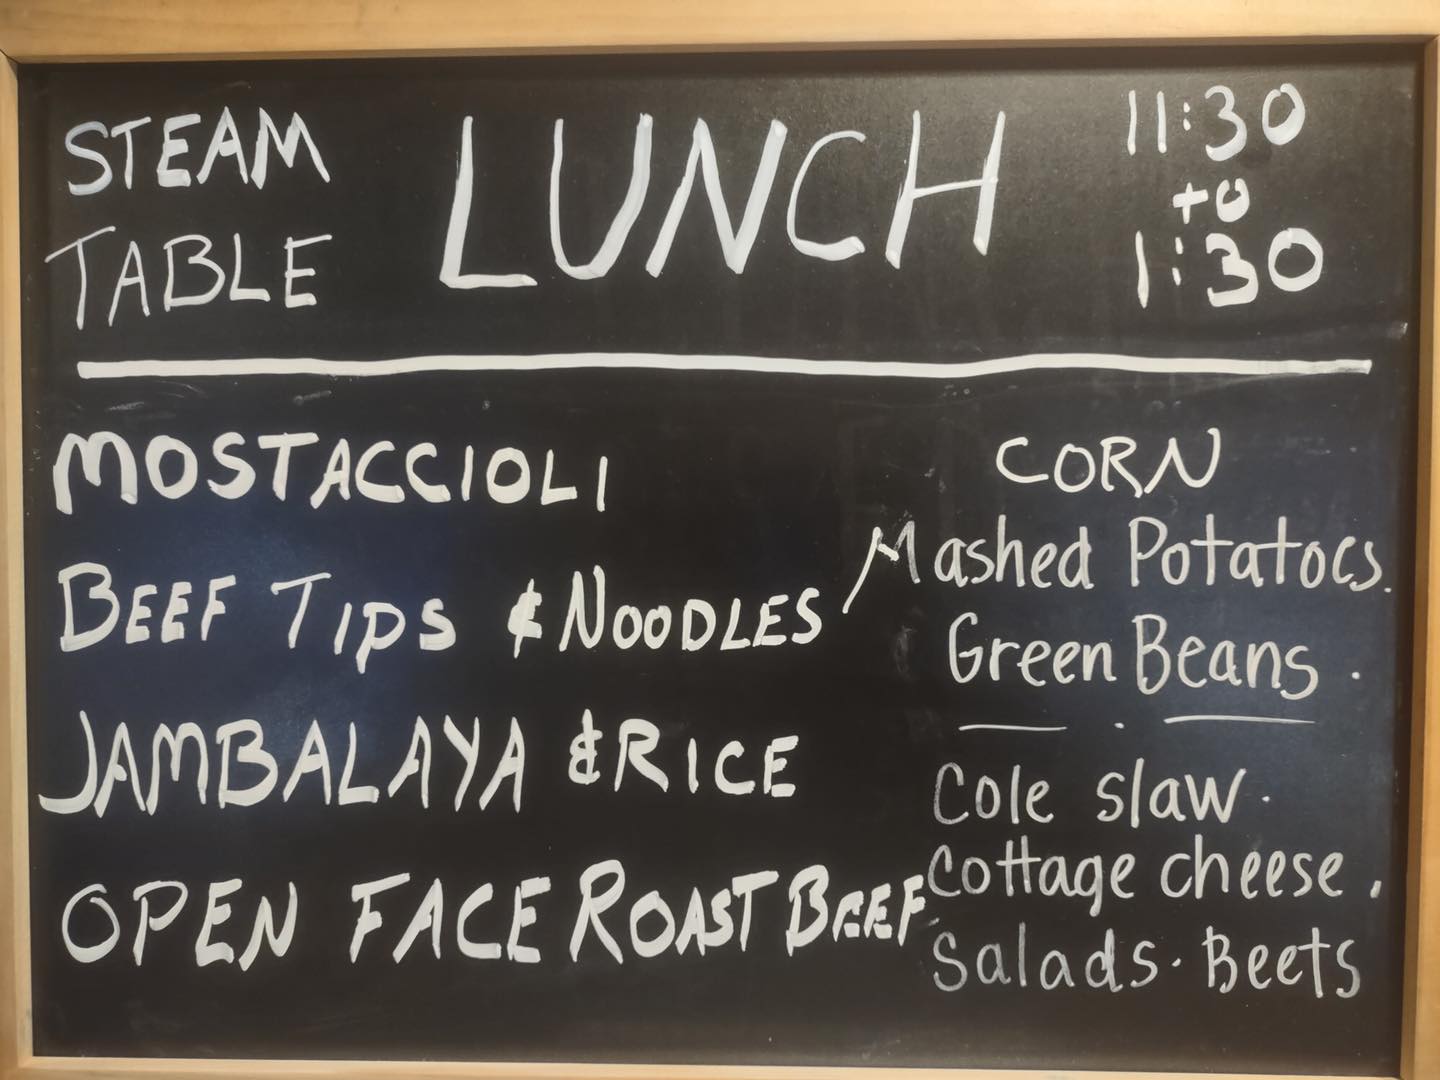 STEAM
TABLE
LUNCH
11:30
to
1:30
MOSTACCIOLI
BEEF TIPS & NOODLES
JAMBALAYA & RICE
OPEN FACE ROAST BEEF
CORN
Mashed Potatoes.
Green Beans.
Cole slaw.
Cottage cheese.
Salads. Beets